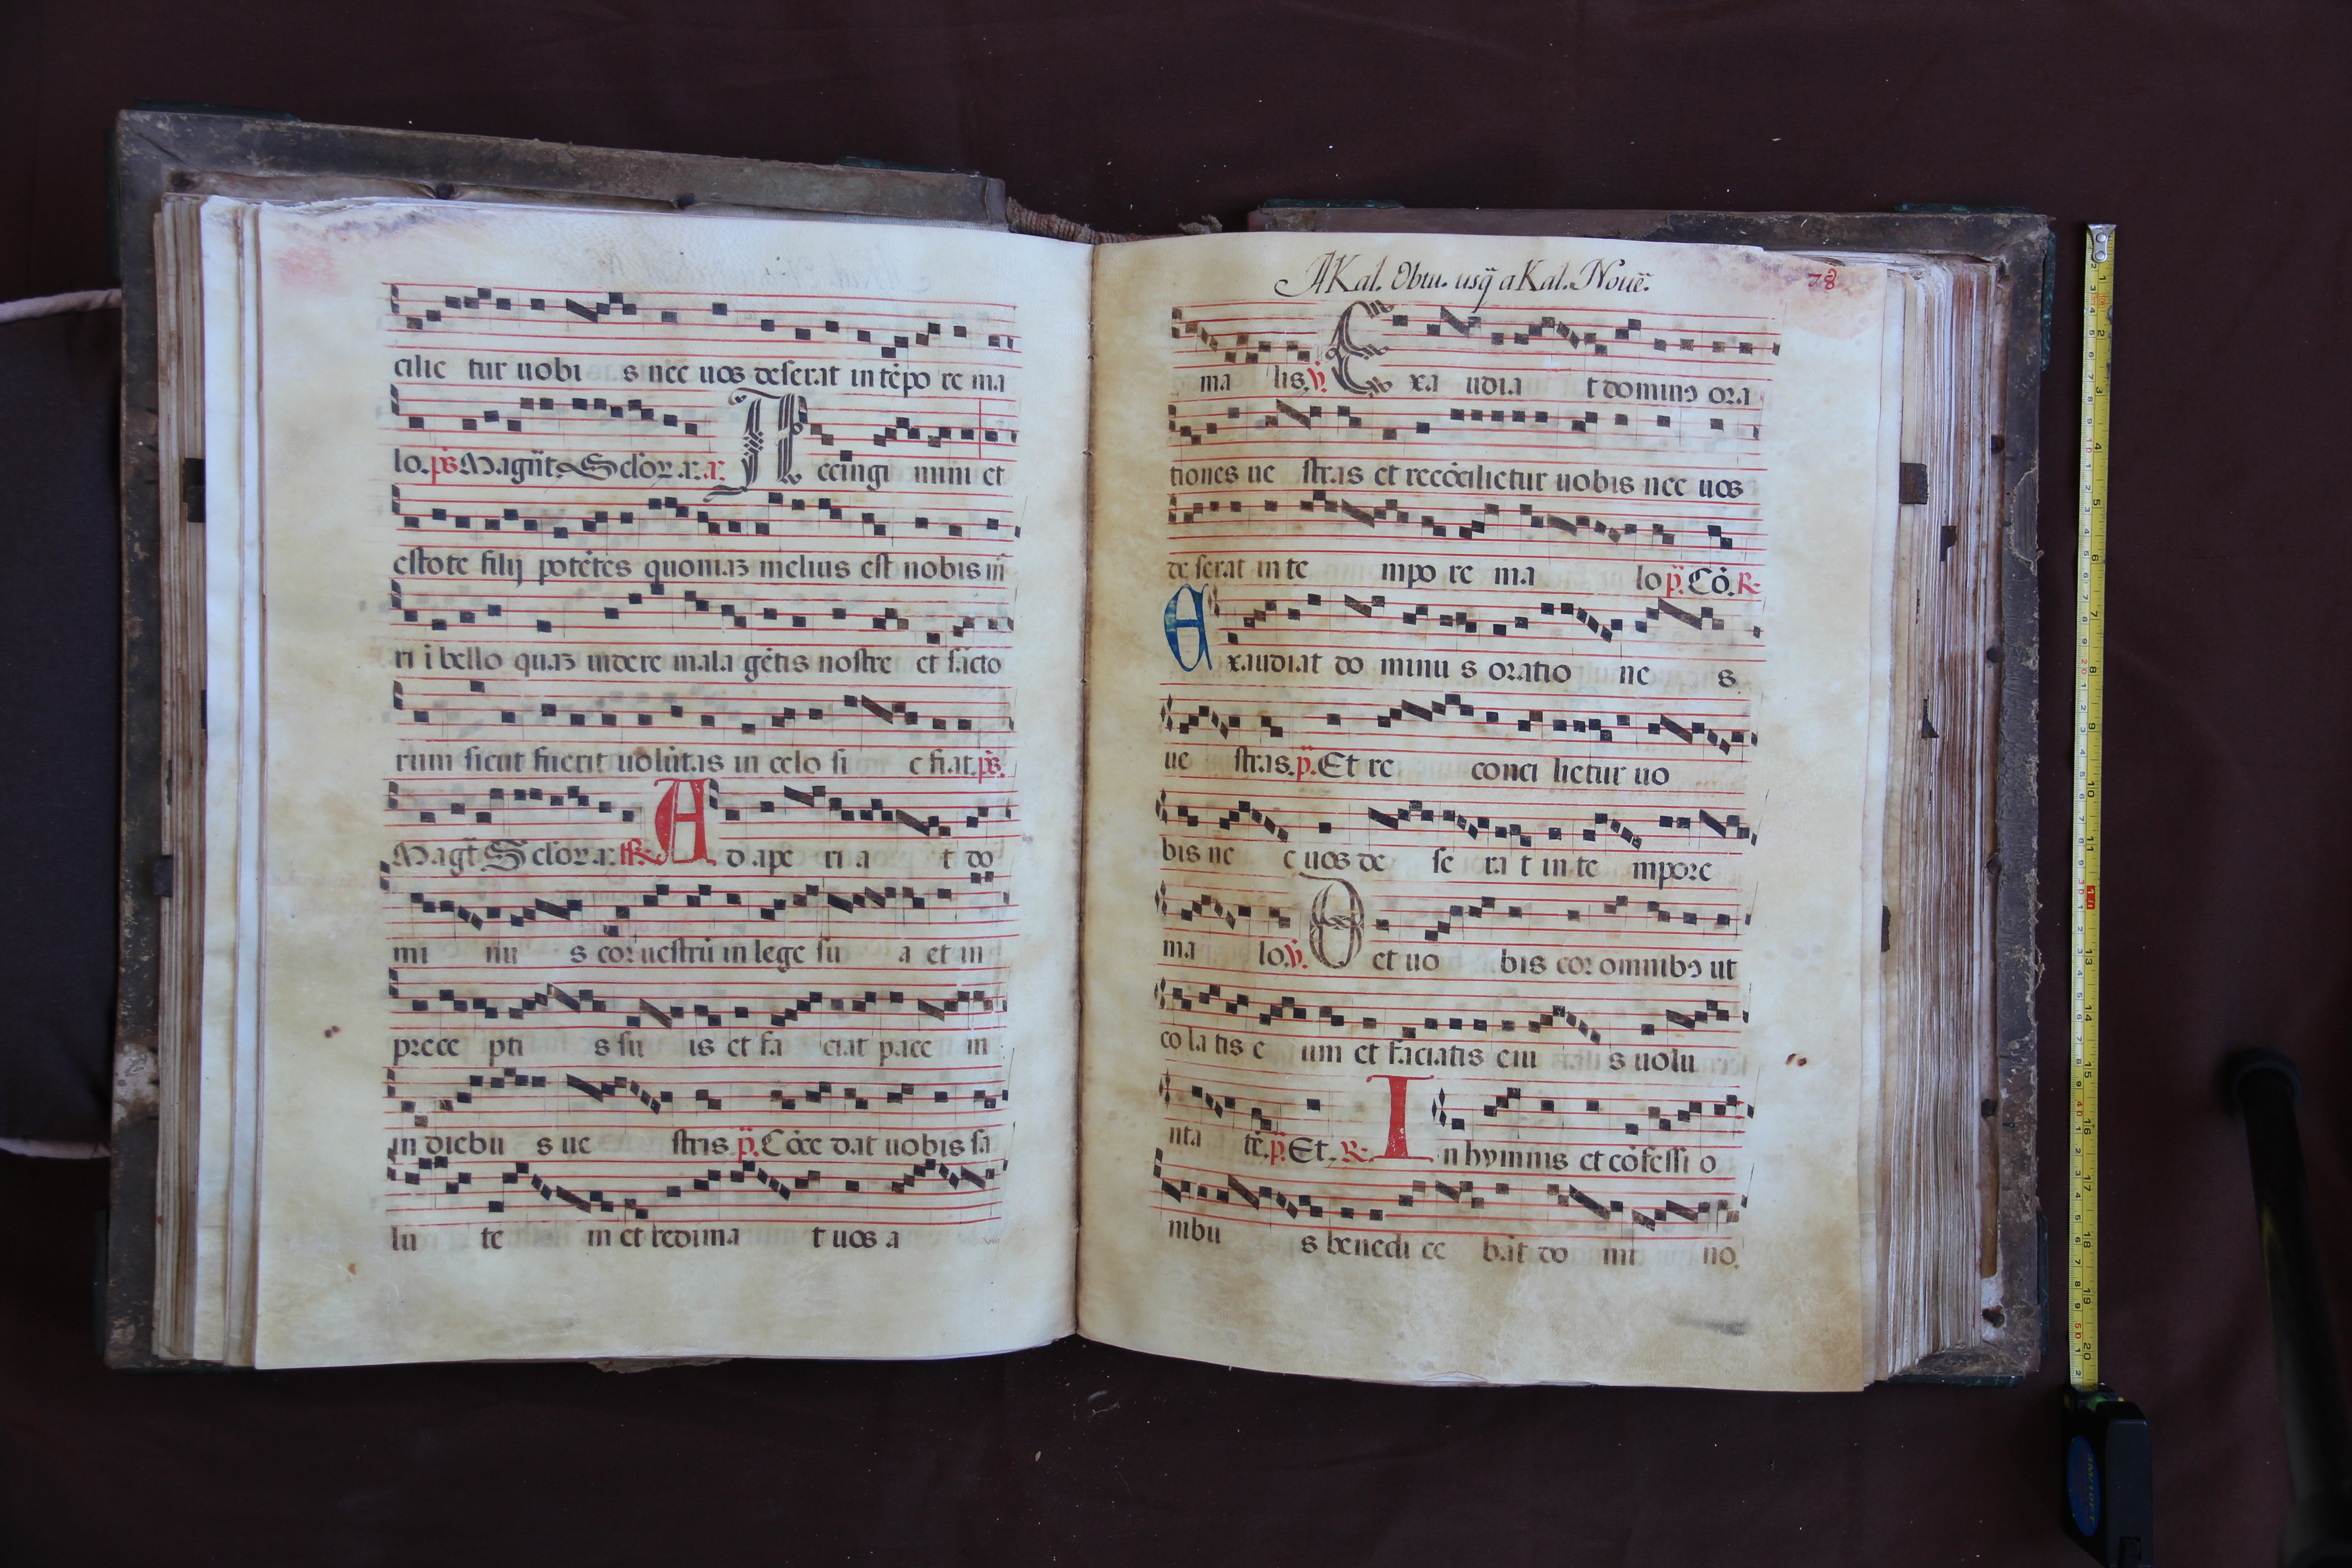 cilie tur uobi s nec uos deserat in tēpo re ma
lo. ps Magn̄t Sc̄lor. a. a. A ccingi mini et
estote filij potētes quoniaʒ melius est nobis m̄
ri ī bello quaʒ uidere mala gētis nostre et sācto
rum sicut fuerit uolūtas in celo si c fiat. ps.
Magt̄ Sc̄lor. a. R. A d ape ri a t do
mi nu s cor uestrū in lege su a et in
prece pti s su is et fa ciat pace in
in diebu s ue stris p̄. Cōce dat uobis sa
lu te m et redima t uos a
A Kal. Obtu. usq̄ a Kal. Noue.
78
ma lis. ꝟ. E xa udia t dominꝰ ora
tiones ue stras et recōcilietur uobis nec uos
de serat in te mpo re ma lo p̄. Cō. R.
E xaudiat do minu s oratio ne s
ue stras. p̄. Et re conci lietur uo
bis ne c uos de se ra t in te mpore
ma lo. ꝟ. D et uo bis cor omnibꝰ ut
co la tis e um et faciatis eiu s uolu
nta tē. p̄. Et. R. I n hymnis et cōfessi o
nibu s benedi ce bāt do mi no.